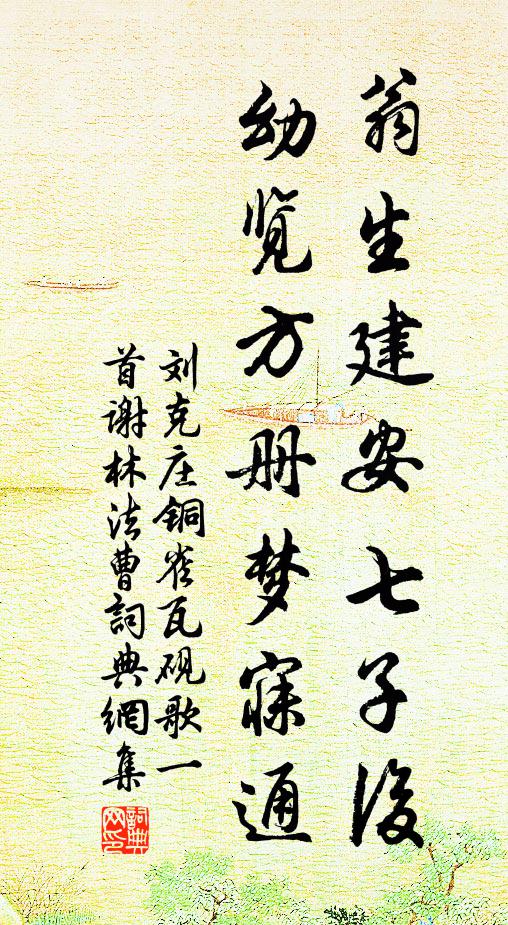 翁生建安七子後
幼览方册梦寐通
刘克庄铜雀瓦砚歌一
首谢林法曹詞典網集
詞典
网印